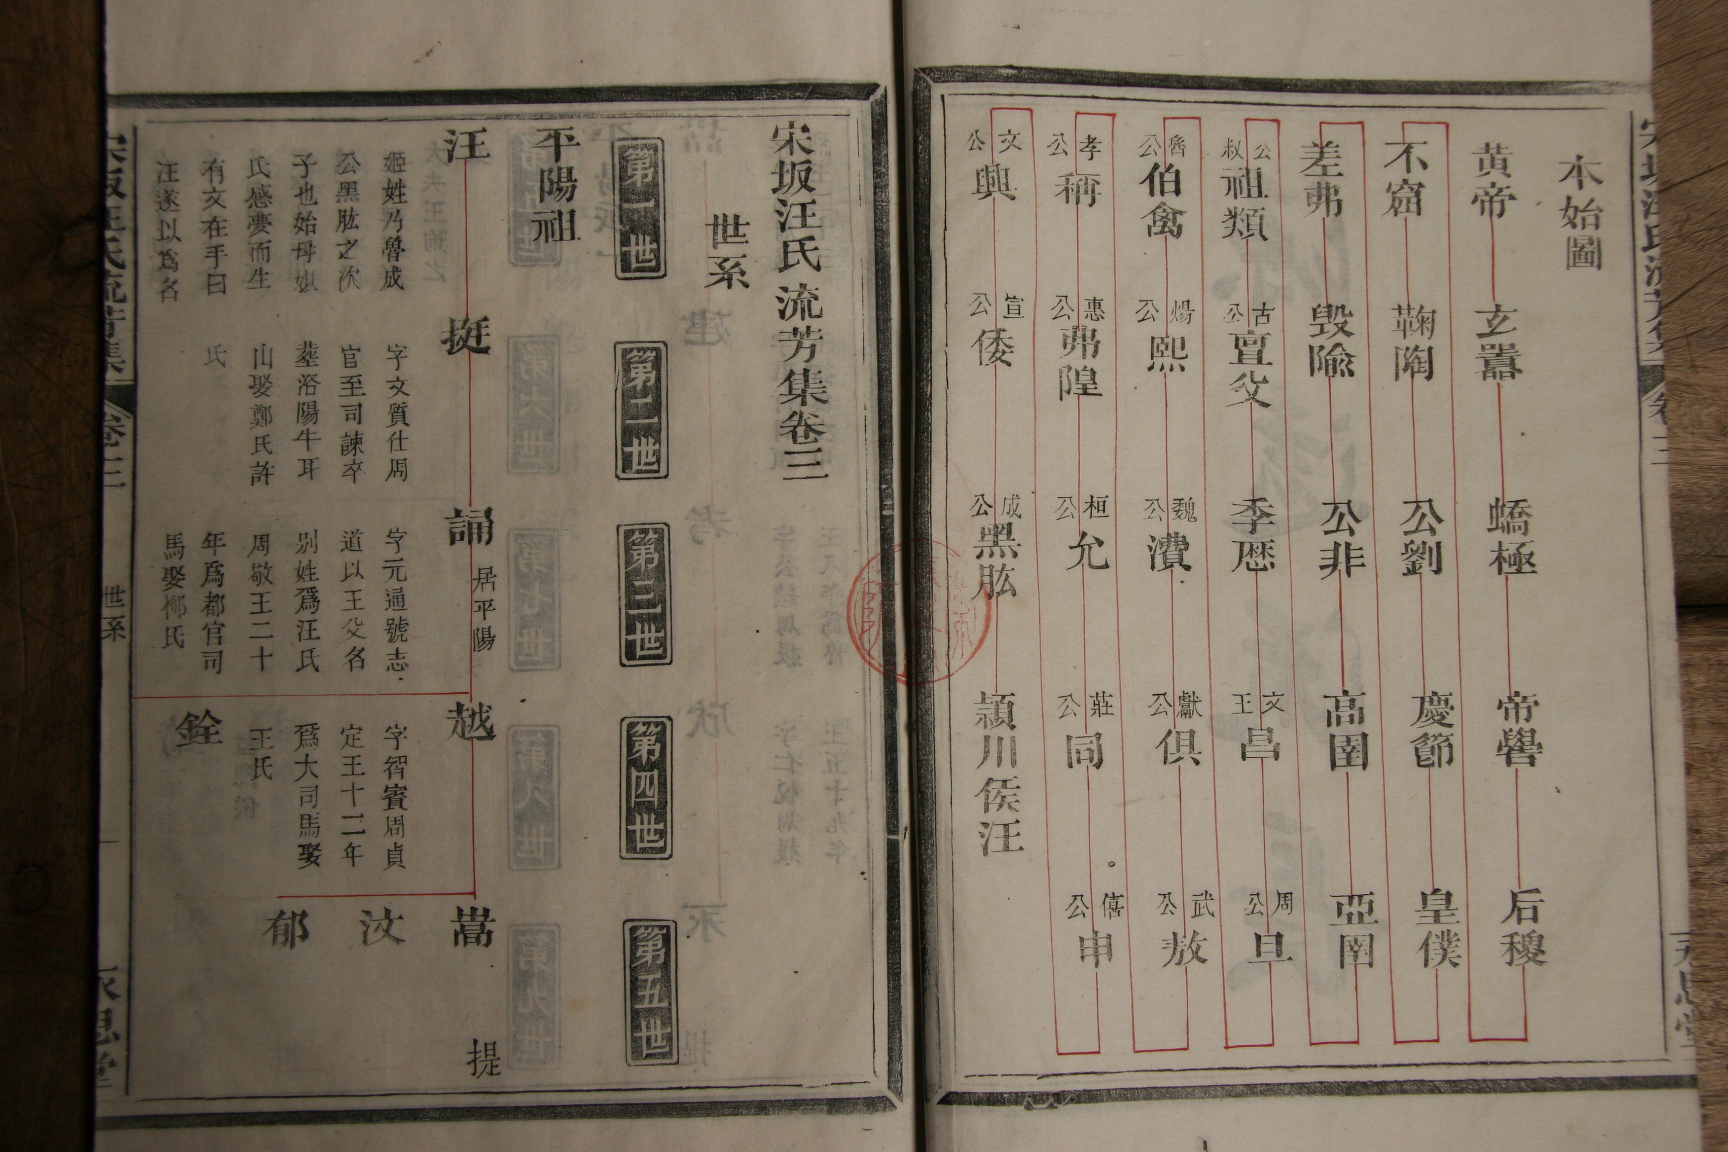 本始圖
黄帝 玄囂 蟜極 帝嚳 后稷
不窋 鞠陶 公劉 慶節 皇僕
差弗 毁隃 公非 高圉 亞圉
公叔祖類 古公亶父 季厯 文王昌 周公旦
魯公伯禽 煬公熙 魏公㵒 獻公俱 武公敖
孝公稱 惠公弗隍 桓公允 莊公同 僖公申
文公興 宣公倭 成公黑肱 頴川侯汪
宋坂汪氏流芳集卷三
世系
第一世 第二世 第三世 第四世 第五世
平陽祖
汪 挺 誦 居平陽 越 嵩 提
姬姓乃魯成
公黑肱之次
子也始母姒
氏感夢而生
有文在手曰
汪遂以爲名
字文質仕周
官至司諫卒
塟洛陽牛耳
山娶鄭氏許
氏
字元通號志
道以王父名
别姓爲汪氏
周敬王二十
年爲都官司
馬娶鄉氏
字智賓周貞
定王十二年
爲大司馬娶
王氏
汶
郁
銓
宋坂汪氏流芳集 卷三 世系 永思堂